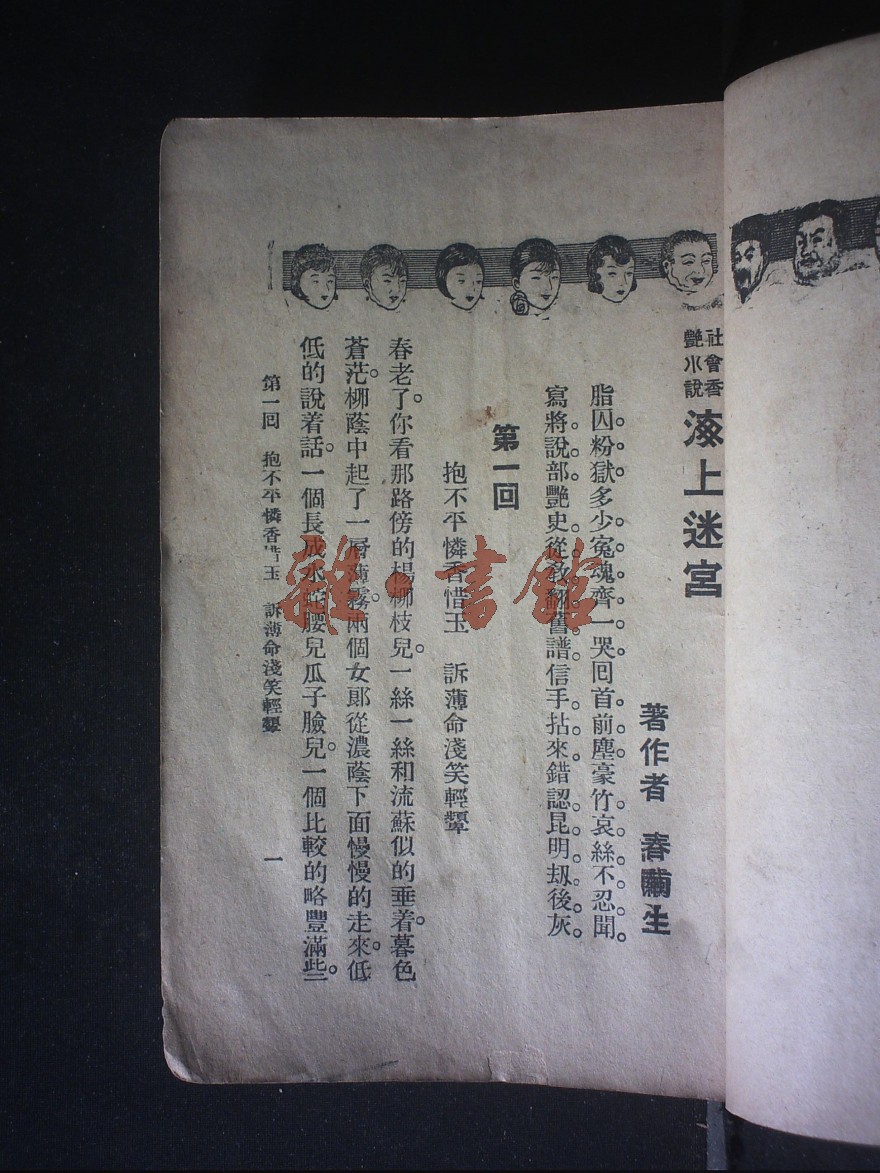 社會香
艷小說
海上迷宮
著作者 春繭生
脂囚粉獄多少寃魂齊一哭回首前塵豪竹哀絲不忍聞。
寫將說部艷史從教翻舊譜信手拈來錯認昆明刼後灰
第一回
抱不平憐香惜玉 訴薄命淺笑輕顰
春老了。你看那路傍的楊柳枝兒。一絲一絲和流蘇似的垂着。暮色
蒼茫。柳蔭中起了一層薄霧。兩個女郞從濃蔭下面慢慢的走來。低
低的說着話。一個長成水蛇腰兒瓜子臉兒。一個比較的略豐滿些。
第一回 抱不平憐香惜玉 訴薄命淺笑輕顰
一
雜·書館